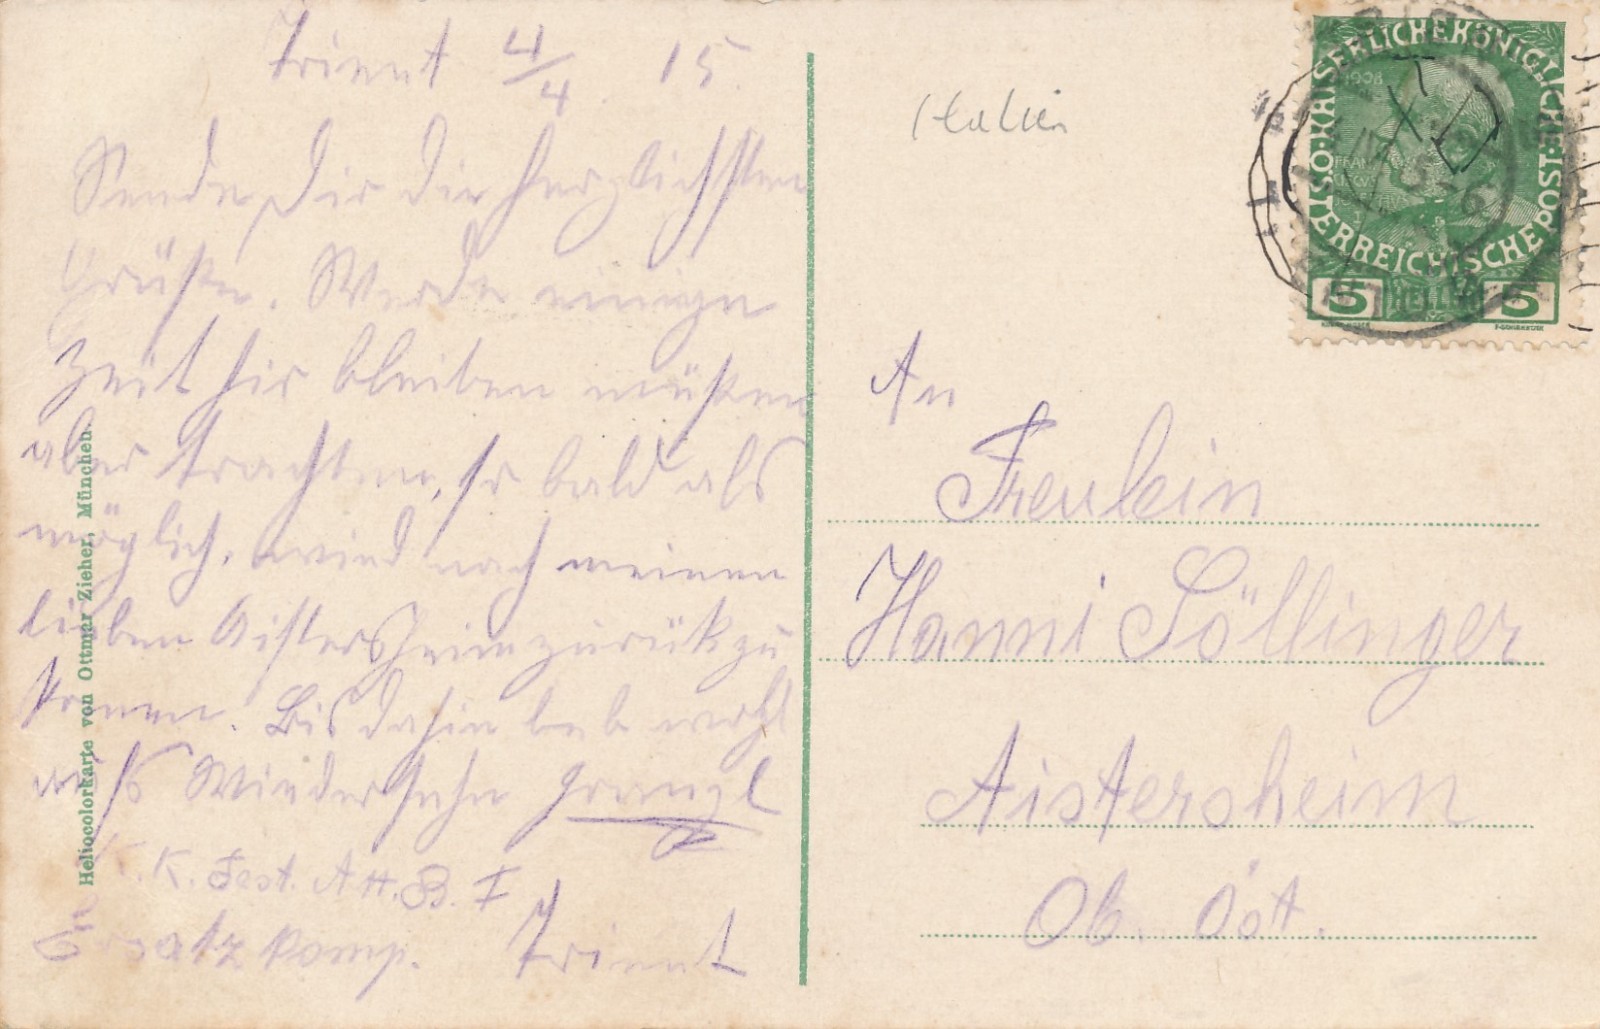 Trient 4/4. 15.
Sende Dir die herzlichsten
Grüße. Werde einige
Zeit hir bleiben müßen
aber trachten, so bald als
möglich, wied nach meinen
lieben Aistersheim zurük zu
komen. Bis dahin leb wohl
aufs Wiedersehn Franzl
K.K. Fest. Art. B. I
Ersatz komp. Trient
Heliocolorkarte von Ottmar Zieher, München.
Italien
KAISERLICHE KÖNIGLICHE ÖSTERREICHISCHE POST
1908
5 HELLER 5
An
Freulein
Hanni Söllinger
Aistersheim
Ob. Öst.